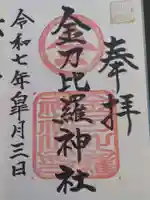 奉拝
金刀比羅神社
令和七年皐月三日